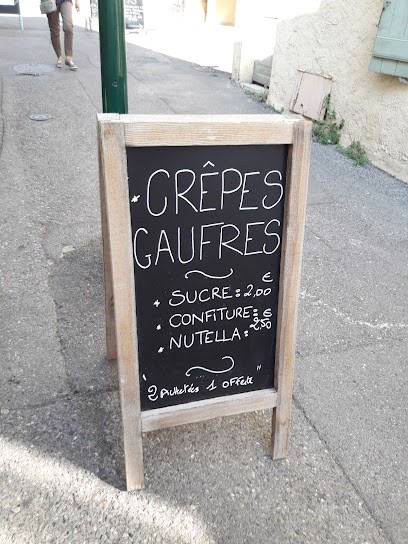 * CRÊPES
GAUFRES
* SUCRE : 2,00 €
* CONFITURE : €
* NUTELLA : 2,50
"2 Achetés 1 offerte"